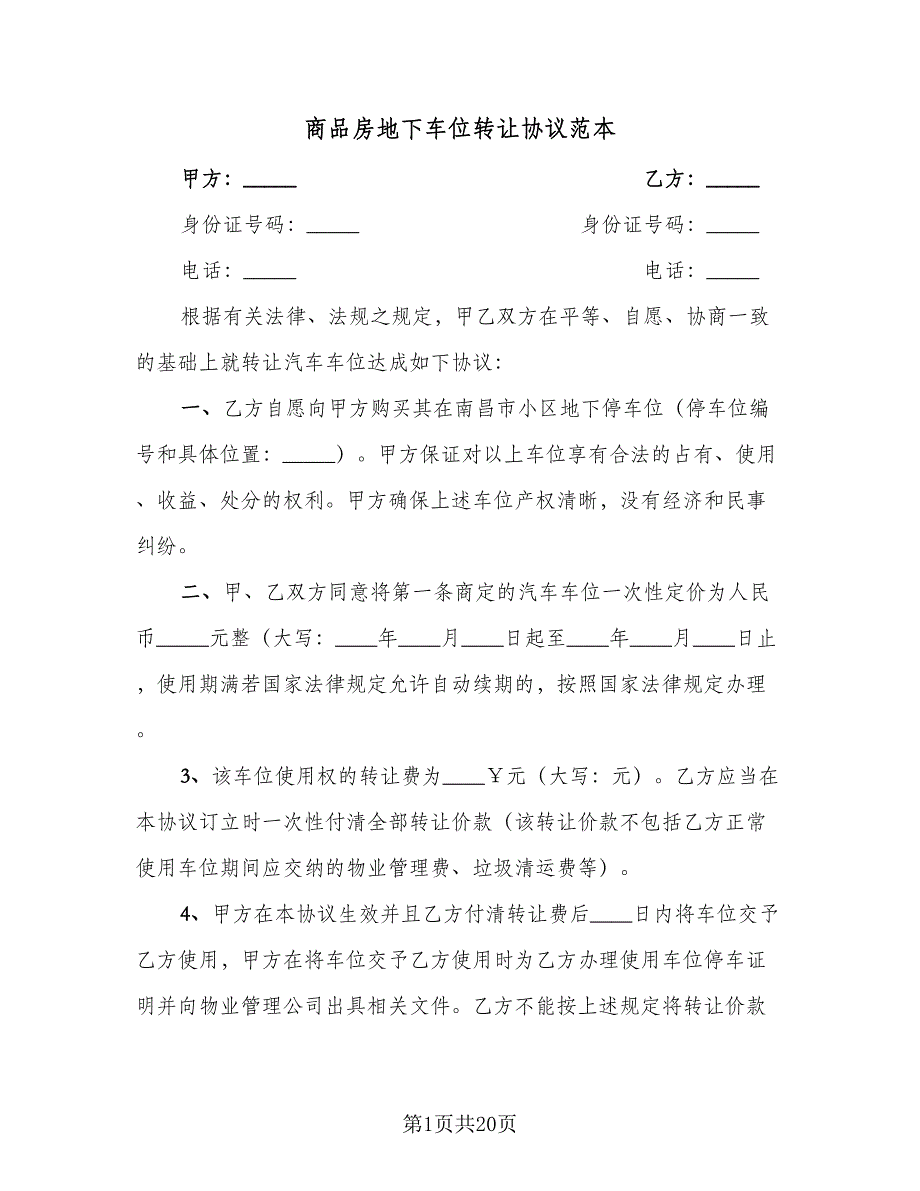 商品房地下车位转让协议范本
甲方：_____ 乙方：_____
身份证号码：_____ 身份证号码：_____
电话：_____ 电话：_____
根据有关法律、法规之规定，甲乙双方在平等、自愿、协商一致
的基础上就转让汽车车位达成如下协议：
一、乙方自愿向甲方购买其在南昌市小区地下停车位（停车位编
号和具体位置：_____）。甲方保证对以上车位享有合法的占有、使用
、收益、处分的权利。甲方确保上述车位产权清晰，没有经济和民事
纠纷。
二、甲、乙双方同意将第一条商定的汽车车位一次性定价为人民
币_____元整（大写：____年____月____日起至____年____月____日止
，使用期满若国家法律规定允许自动续期的，按照国家法律规定办理
。
3、该车位使用权的转让费为____￥元（大写：元）。乙方应当在
本协议订立时一次性付清全部转让价款（该转让价款不包括乙方正常
使用车位期间应交纳的物业管理费、垃圾清运费等）。
4、甲方在本协议生效并且乙方付清转让费后____日内将车位交予
乙方使用，甲方在将车位交予乙方使用时为乙方办理使用车位停车证
明并向物业管理公司出具相关文件。乙方不能按上述规定将转让价款
第1页共20页